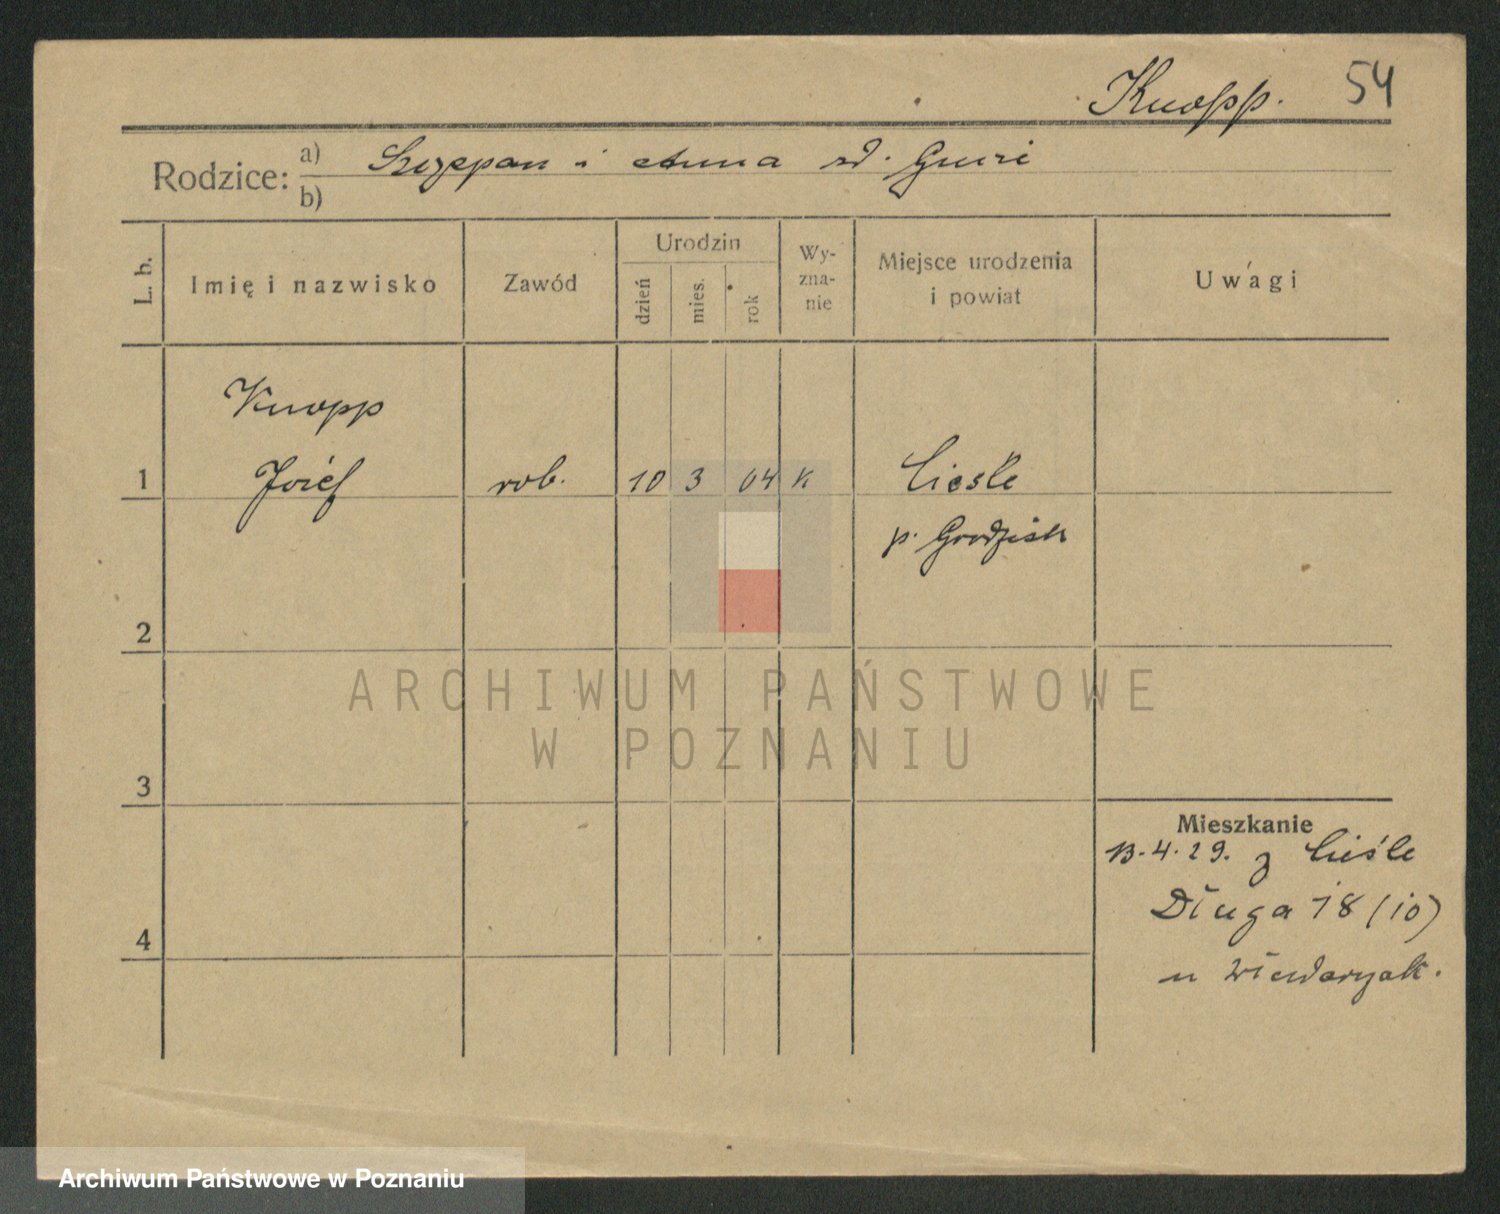 Knopp. 54
Rodzice: a) Szczepan i Anna
b)
L. b. Imię i nazwisko Zawód Urodzin dzień mies. rok Wy-zna-nie Miejsce urodzenia i powiat Uwagi
Knopp
1 Józef rob. 10 3 04 K Cieśle
p. Grodzisk
2
3
Mieszkanie
13.4.29. z Cieśle
Długa 18 (10)
4
u
ARCHIWUM PAŃSTWOWE
W POZNANIU
Archiwum Państwowe w Poznaniu